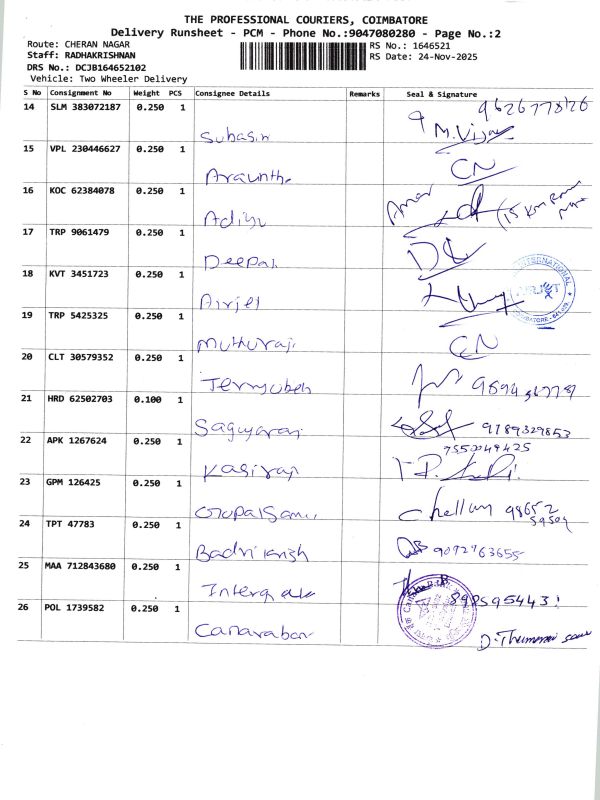 THE PROFESSIONAL COURIERS, COIMBATORE
Delivery Runsheet - PCM - Phone No.:9047080280 - Page No.:2
Route: CHERAN NAGAR
Staff: RADHAKRISHNAN
DRS No.: DCJB164652102
Vehicle: Two Wheeler Delivery
RS No.: 1646521
RS Date: 24-Nov-2025
S No Consignment No Weight PCS Consignee Details Remarks Seal & Signature
14 SLM 383072187 0.250 1 Subasin 9626778126 M.Vijay
15 VPL 230446627 0.250 1 CN
16 KOC 62384078 0.250 1 Adiyu
17 TRP 9061479 0.250 1 Deepak
18 KVT 3451723 0.250 1 Airjet INTERNATIONAL
19 TRP 5425325 0.250 1 Muthuraji CN
20 CLT 30579352 0.250 1
21 HRD 62502703 0.100 1 9789329853
22 APK 1267624 0.250 1 Kasiraji 7550049425
23 GPM 126425 0.250 1 Gopalsamy Chellam 98652
24 TPT 47783 0.250 1 9092763655
25 MAA 712843680 0.250 1
26 POL 1739582 0.250 1